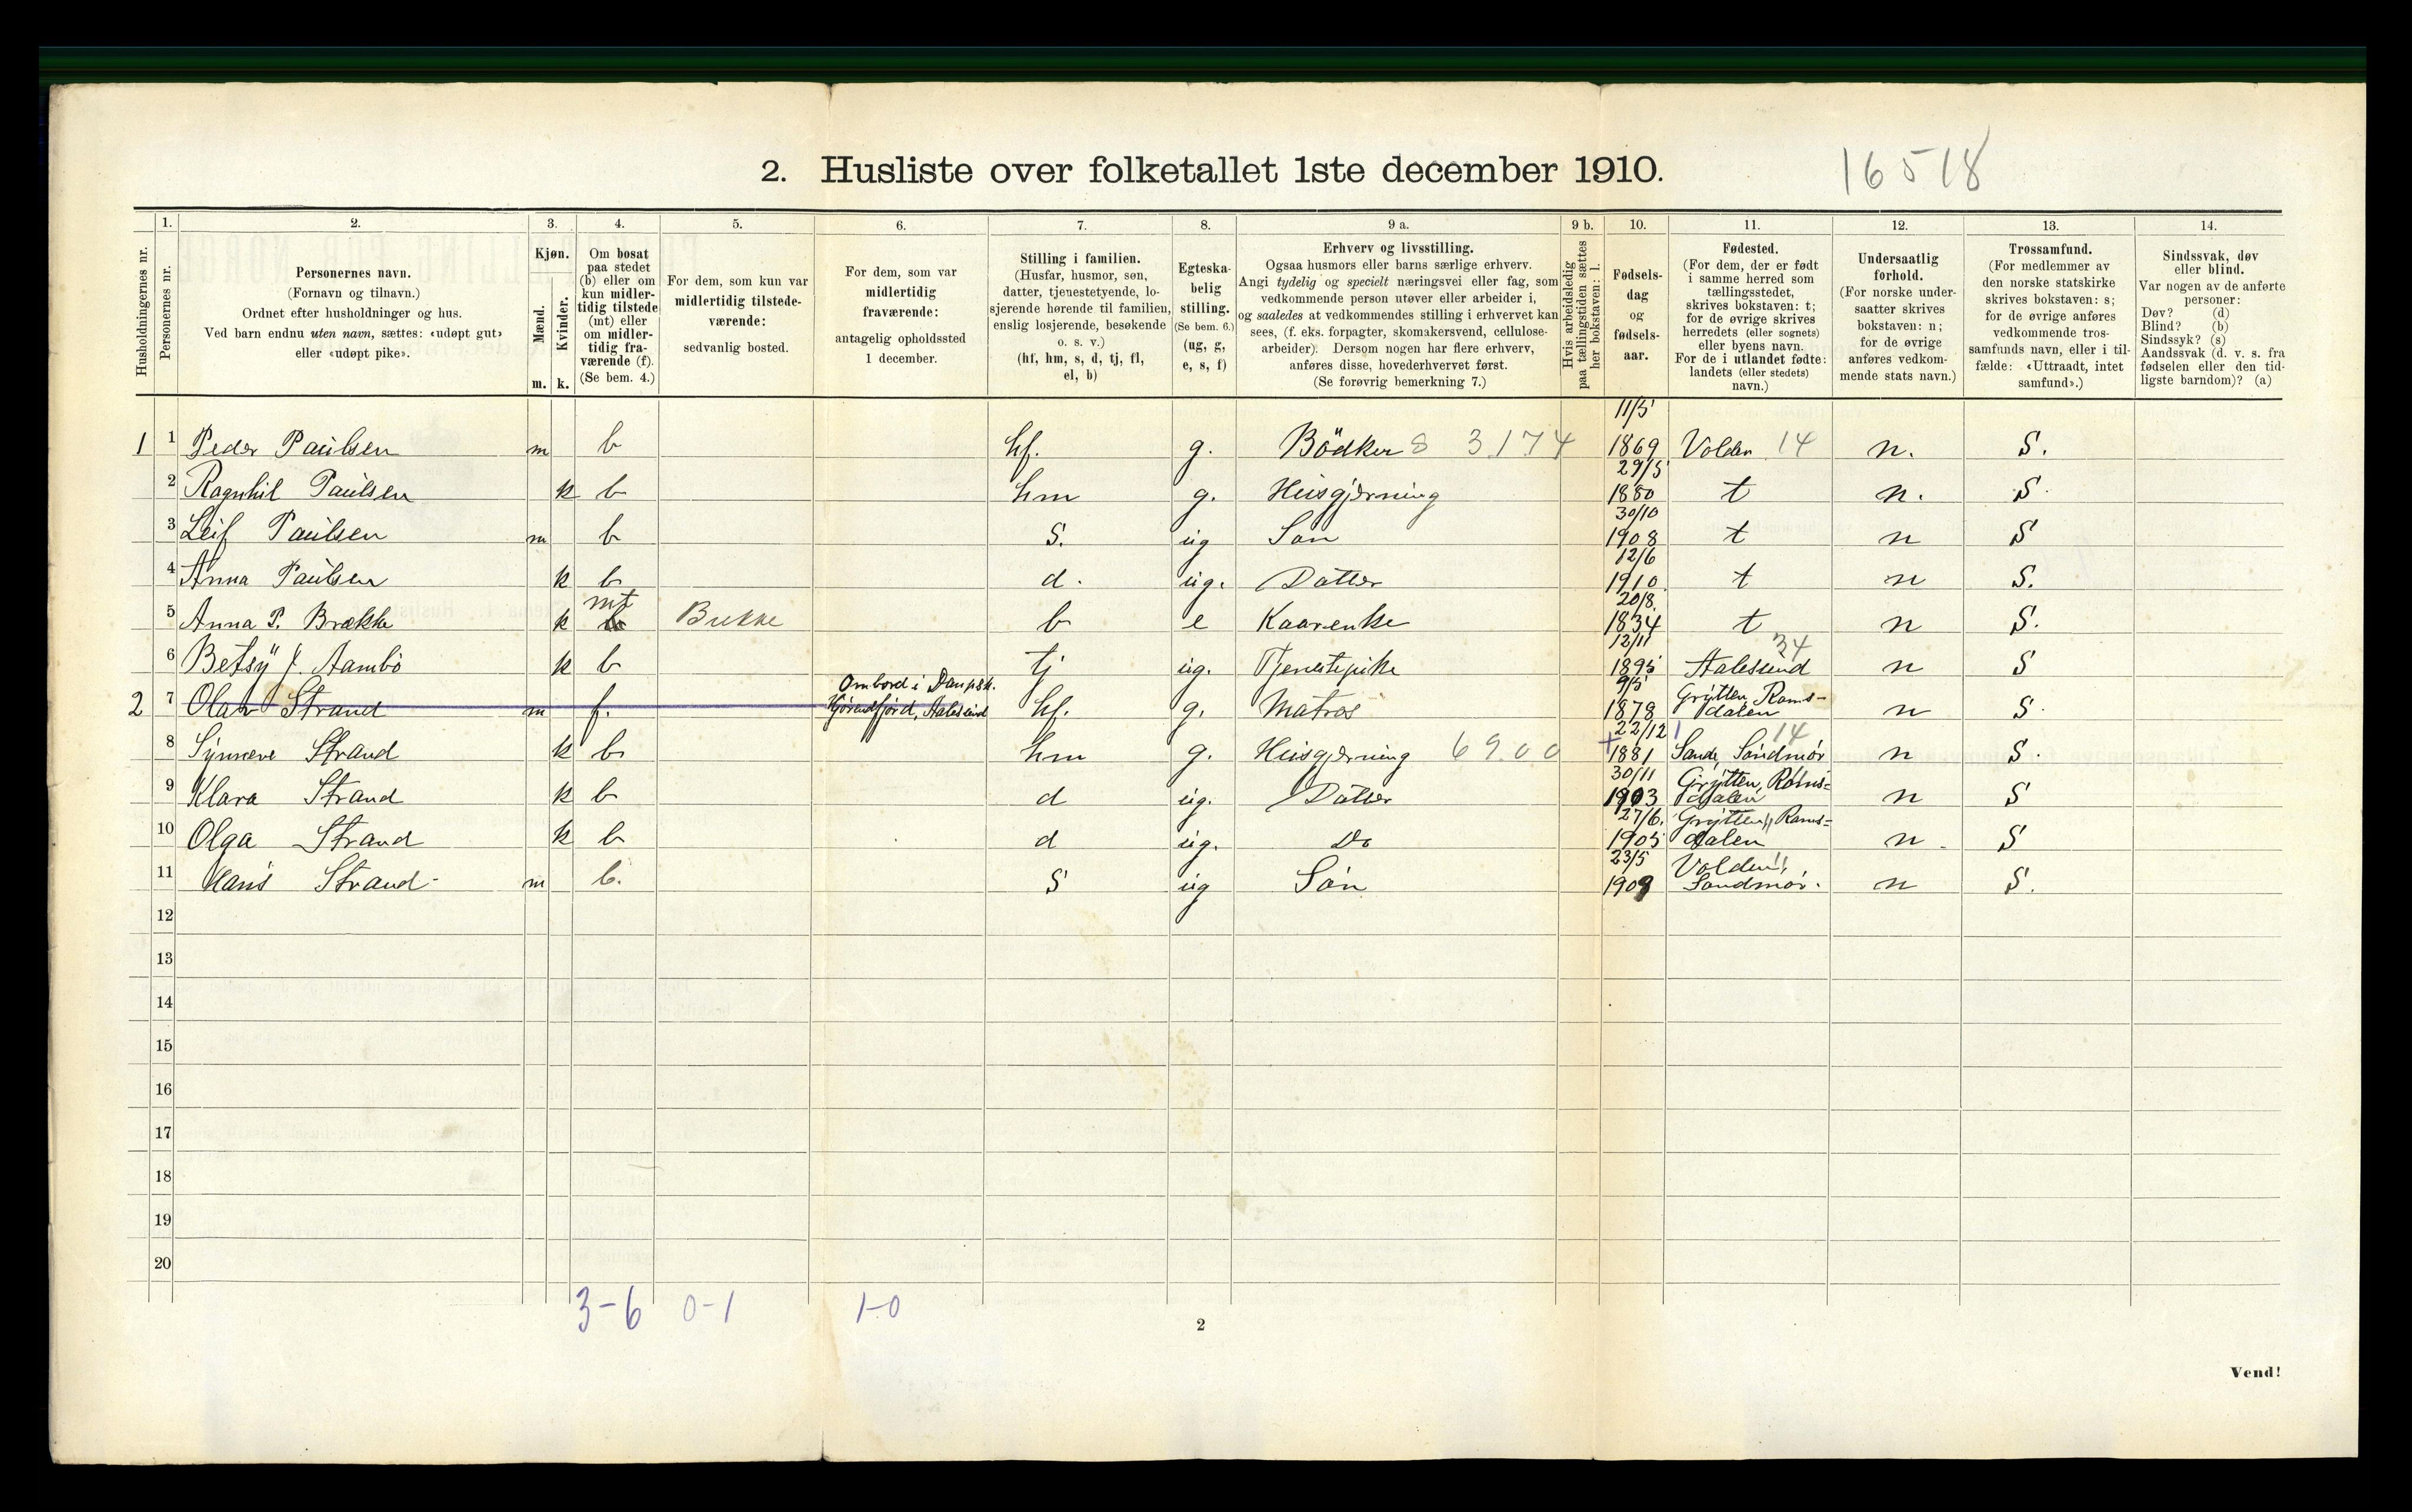 16518
2. Husliste over folketallet 1ste december 1910.
Husholdningernes nr.
1.
Personernes nr.
2.
Personernes navn.
(Fornavn og tilnavn.)
Ordnet efter husholdninger og hus.
Ved barn endnu uten navn, sættes: «udøpt gut»
eller «udøpt pike».
3.
Kjøn.
Mænd.
Kvinder.
m. k.
4.
Om bosat
paa stedet
(b) eller om
kun midler-
tidig tilstede
(mt) eller
om midler-
tidig fra-
værende (f).
(Se bem. 4.)
5.
For dem, som kun var
midlertidig tilstede-
værende:
sedvanlig bosted.
6.
For dem, som var
midlertidig
fraværende:
antagelig opholdssted
1 december.
7.
Stilling i familien.
(Husfar, husmor, søn,
datter, tjenestetyende, lo-
sjerende hørende til familien,
enslig losjerende, besøkende
o. s. v.)
(hf, hm, s, d, tj, fl,
el, b)
8.
Egteska-
belig
stilling.
(Se bem. 6.)
(ug, g,
e, s, f)
9 a.
Erhverv og livsstilling.
Ogsaa husmors eller barns særlige erhverv.
Angi tydelig og specielt næringsvei eller fag, som
vedkommende person utøver eller arbeider i,
og saaledes at vedkommendes stilling i erhvervet kan
sees, (f. eks. forpagter, skomakersvend, cellulose-
arbeider). Dersom nogen har flere erhverv,
anføres disse, hovederhvervet først.
(Se forøvrig bemerkning 7.)
9 b.
Hvis arbeidsledig
paa tællingstiden sættes
her bokstaven: l.
10.
Fødsels-
dag
og
fødsels-
aar.
11.
Fødested.
(For dem, der er født
i samme herred som
tællingsstedet,
skrives bokstaven: t;
for de øvrige skrives
herredets (eller sognets)
eller byens navn.
For de i utlandet fødte:
landets (eller stedets)
navn.)
12.
Undersaatlig
forhold.
(For norske under-
saatter skrives
bokstaven: n;
for de øvrige
anføres vedkom-
mende stats navn.)
13.
Trossamfund.
(For medlemmer av
den norske statskirke
skrives bokstaven: s;
for de øvrige anføres
vedkommende tros-
samfunds navn, eller i til-
fælde: «Uttraadt, intet
samfund».)
14.
Sindssvak, døv
eller blind.
Var nogen av de anførte
personer:
Døv? (d)
Blind? (b)
Sindssyk? (s)
Aandssvak (d. v. s. fra
fødselen eller den tid-
ligste barndom)? (a)
1 1 Peder Paulsen m b hf. g. Bödker 8 3174 11/5 1869 Volden 14 n. S.
2 Ragnhil Paulsen k b hm g. Husgjerning 29/5 1880 t n. S.
3 Leif Paulsen m b S. ug Søn 30/10 1908 t n S
4 Anna Paulsen k b d. ug. Datter 12/6 1910 t n S.
5 Anna P. Brække k mt Brekke b e Kaarenke 20/8. 1834 t n S.
6 Betsy J. Aambö k b tj ug. Tjenestepike 12/11 1895 Aalesund 34 n S
2 7 Olav Strand m f. Ombord i Dampsk. Hjörendfjord, Aalesund hf. g. Matros 9/5 1878 Grytten, Roms-dalen n S
8 Synneve Strand k b hm g. Husgjerning 6900 22/12 1881 Sande, Söndmör 14 n S.
9 Klara Strand k b d ug. Datter 30/11 1903 Grytten, Roms=dalen n S
10 Olga Strand k b d ug. Do 27/6. 1905 Grytten, Roms=dalen n S
11 Hans Strand m b. S ug Søn 23/5 1909 Volden, Söndmör. n S.
12
13
14
15
16
17
18
19
20
3-6 0-1 1-0
2
Vend!